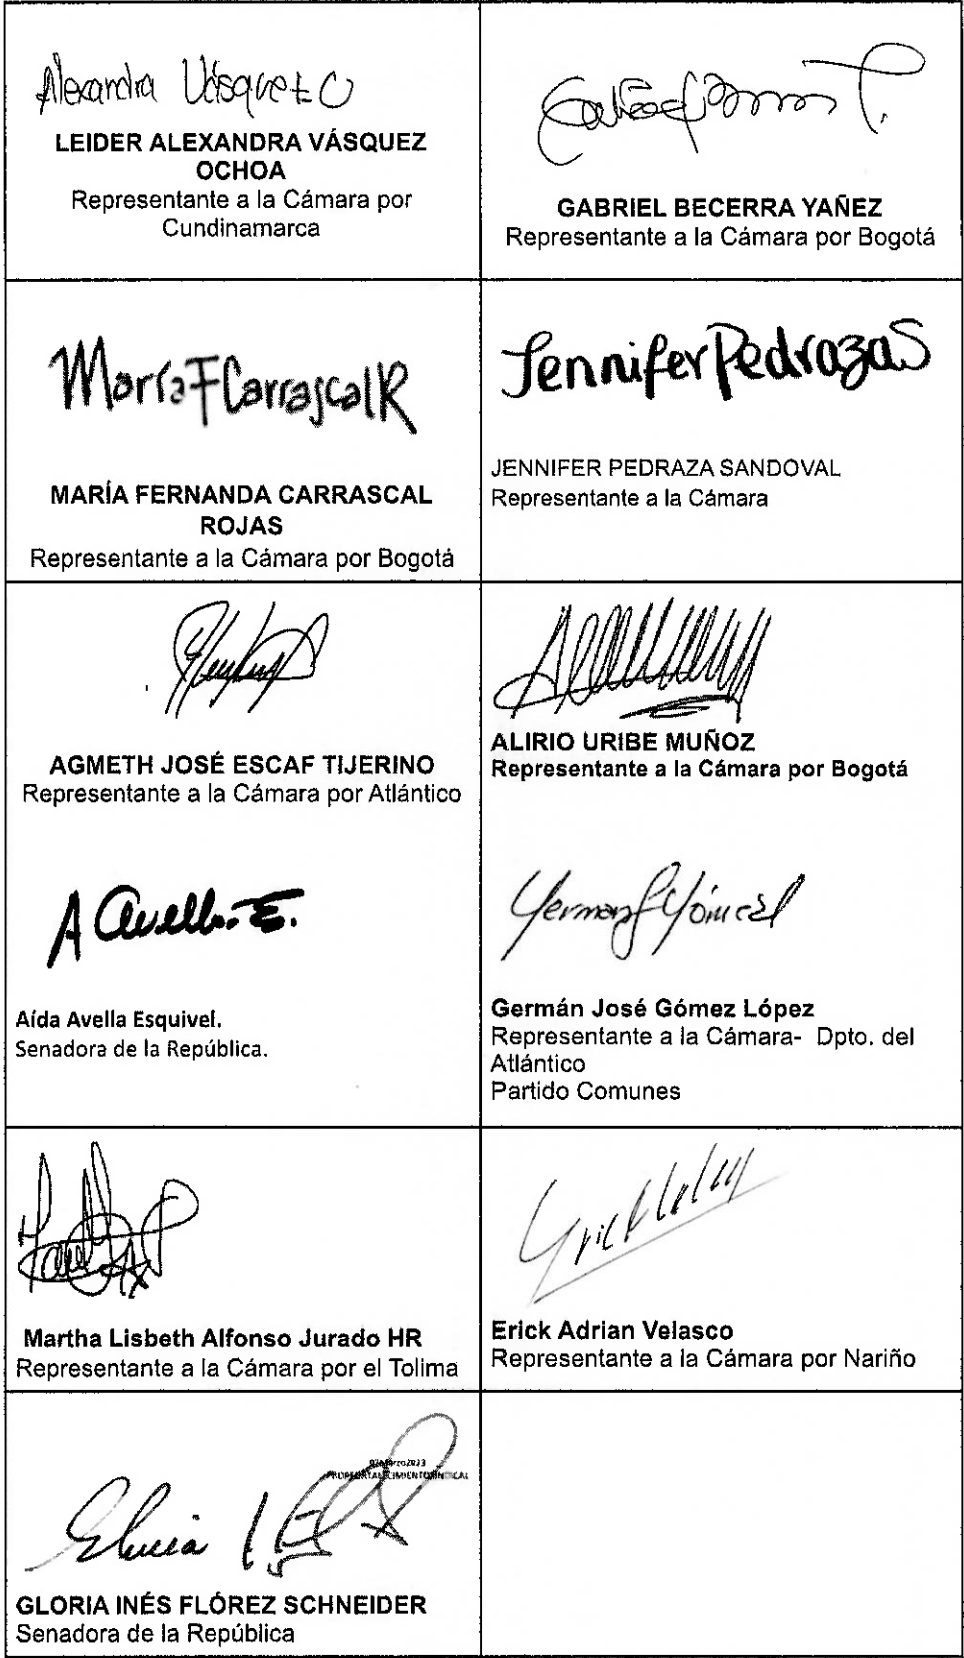 Alexandra Vásquez O
LEIDER ALEXANDRA VÁSQUEZ
OCHOA
Representante a la Cámara por
Cundinamarca
GABRIEL BECERRA YAÑEZ
Representante a la Cámara por Bogotá
María F Carrascal R
MARÍA FERNANDA CARRASCAL
ROJAS
Representante a la Cámara por Bogotá
Jennifer Pedraza S
JENNIFER PEDRAZA SANDOVAL
Representante a la Cámara
AGMETH JOSÉ ESCAF TIJERINO
Representante a la Cámara por Atlántico
ALIRIO URIBE MUÑOZ
Representante a la Cámara por Bogotá
A Avella E.
Aída Avella Esquivel.
Senadora de la República.
Germán José Gómez López
Representante a la Cámara- Dpto. del
Atlántico
Partido Comunes
Martha Lisbeth Alfonso Jurado HR
Representante a la Cámara por el Tolima
Erick Adrian Velasco
Representante a la Cámara por Nariño
GLORIA INÉS FLÓREZ SCHNEIDER
Senadora de la República